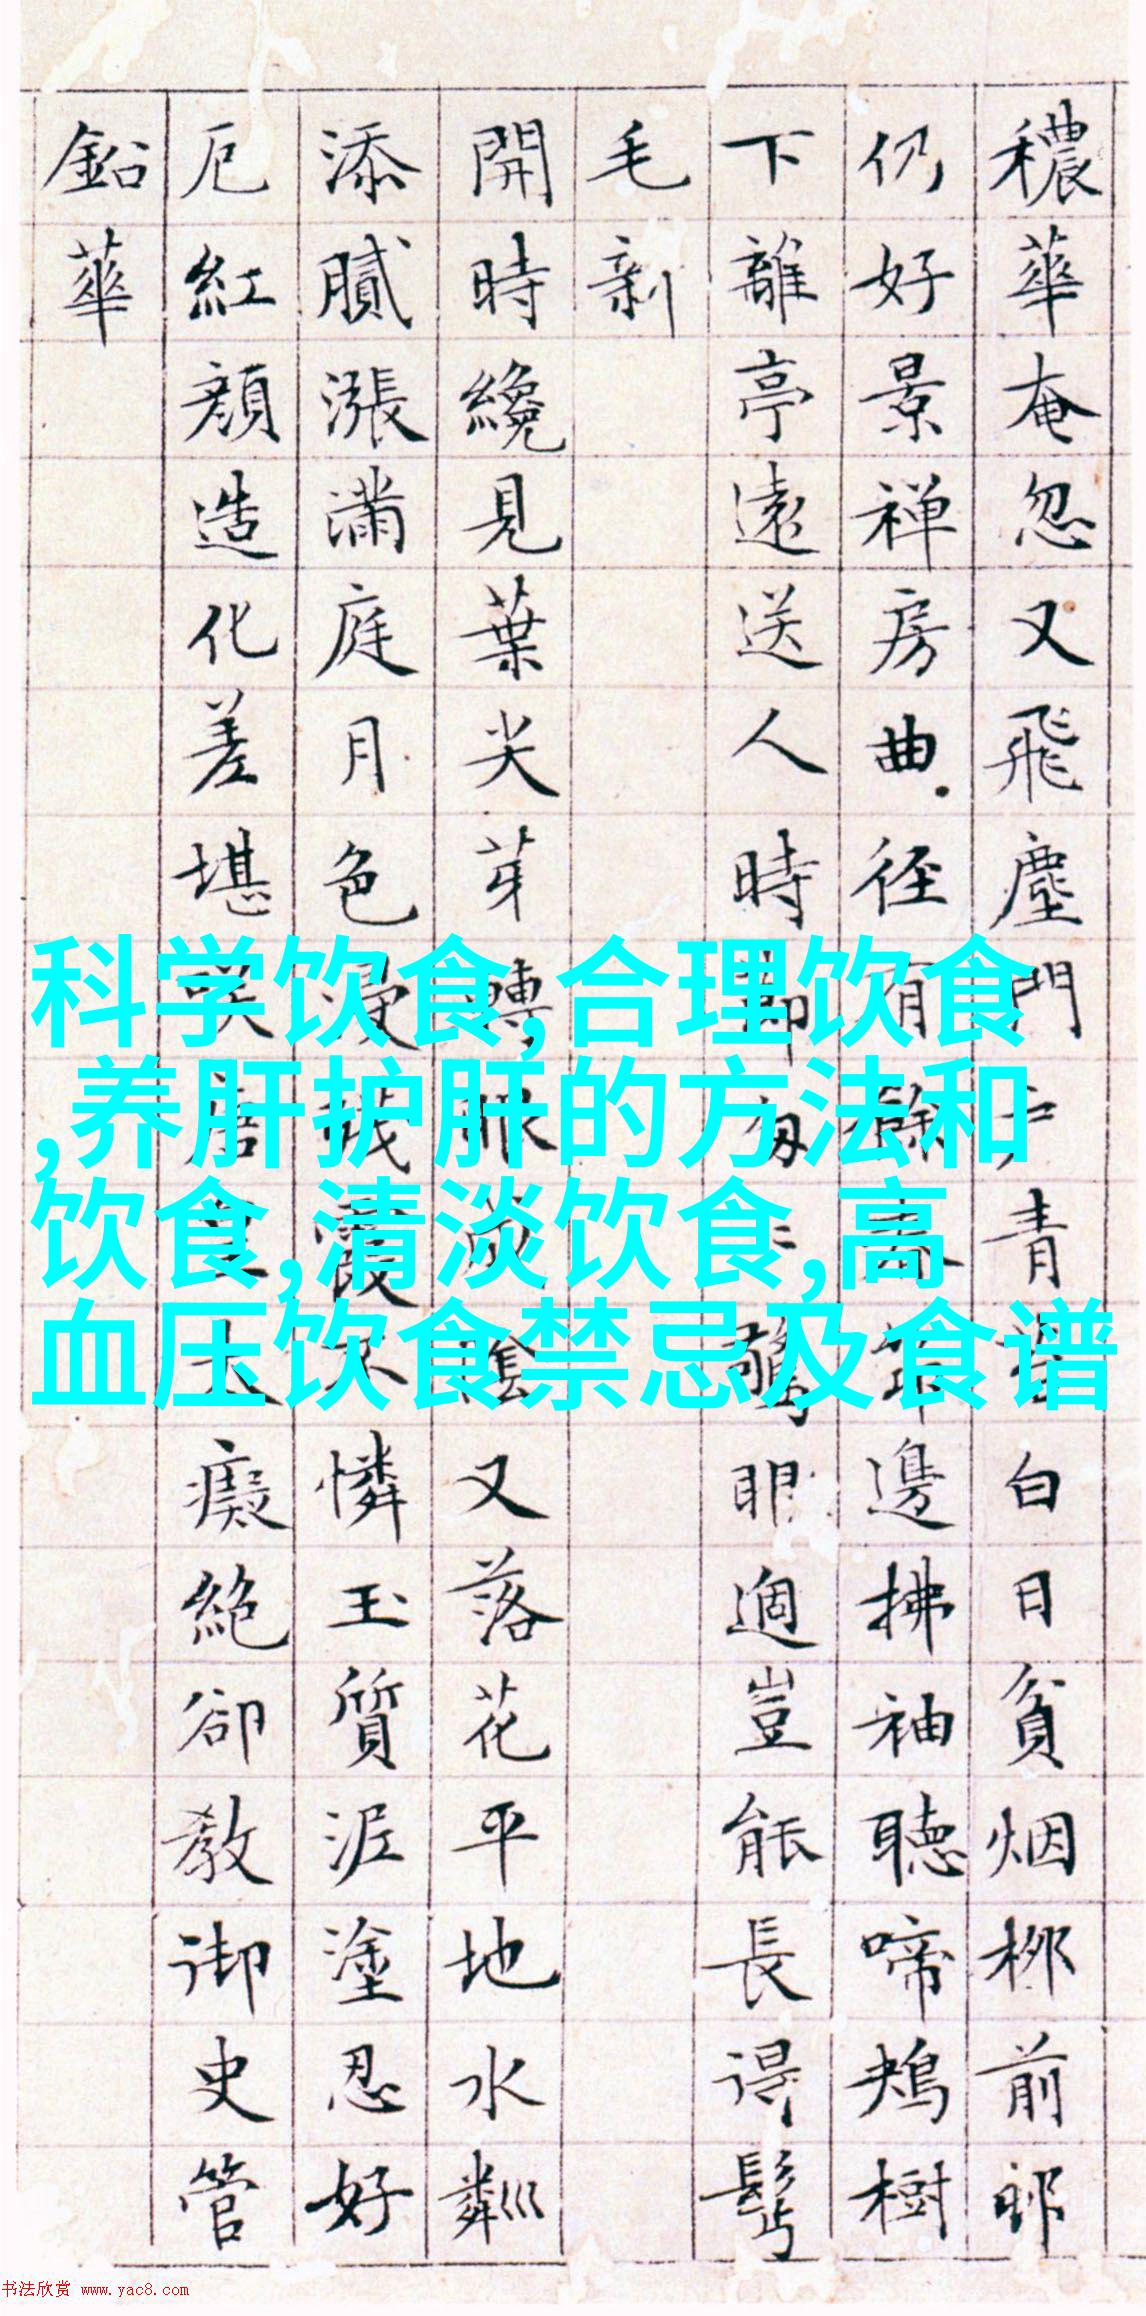 穠華奄忽又飛塵門戶青白日貧烟栁前邨
仍好景禅房曲径有餘春邊拂袖聽啼鴂樹
下離亭遠送人時節驚眼過豈能長得鬢
毛新
開時纔見葉尖芽轉眼成陰又落花平地水粼巛
添膩漲滿庭月色浸殘霞不憐玉質泥塗忍好
厄紅顏造化差堪唐皇太癡絕卻教御史管
鉛華
科学饮食,合理饮食
,养肝护肝的方法和
饮食,清淡饮食,高
血压饮食禁忌及食谱
书法欣赏 www.yac8.com